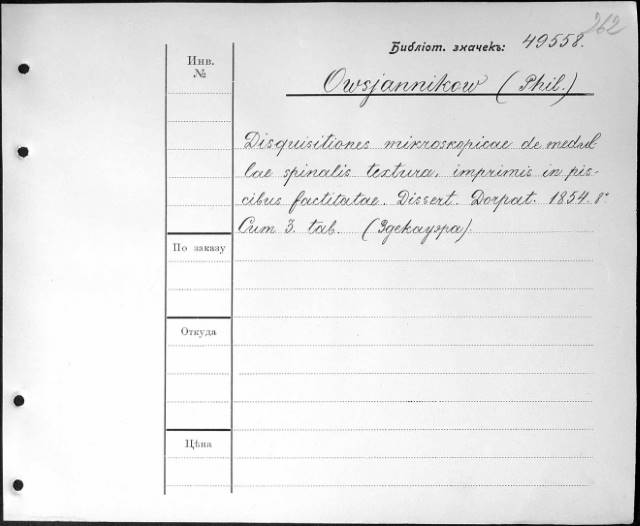 262
Библіот. значекъ: 49558.
Инв.
№
Owsjannikow (Phil.)
Disquisitiones mikroskopicae de medul-
lae spinalis textura, imprimis in pis-
cibus factitatae. Dissert. Dorpat. 1854. 8°
Cum 3. tab. (Здекауэра).
По заказу
Откуда
Цѣна